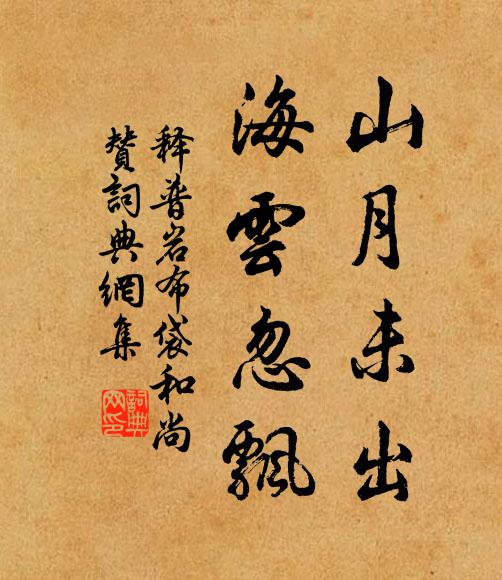 山月未出
海雲忽飄
释普岩布袋和尚
赞詞典網集
詞典网印